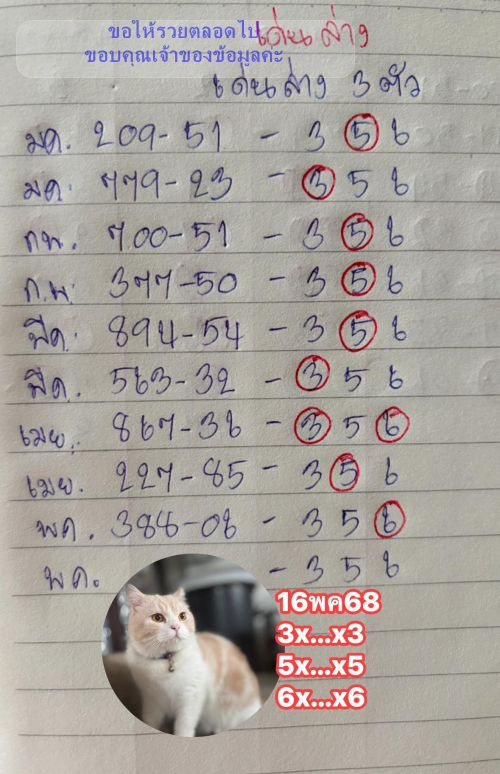 ขอให้รวยตลอดไป
เด่นล่าง
ขอบคุณเจ้าของข้อมูลค่ะ
เด่นล่าง 3 ตัว
มค. 209-51 - 3 5 6
มค. 779-23 - 3 5 6
กพ. 700-51 - 3 5 6
ก.พ. 377-50 - 3 5 6
มีค. 894-54 - 3 5 6
มีค. 563-32 - 3 5 6
เมย. 867-36 - 3 5 6
เมย. 227-85 - 3 5 6
พค. 388-06 - 3 5 6
พค. - 3 5 6
16พค68
3x...x3
5x...x5
6x...x6